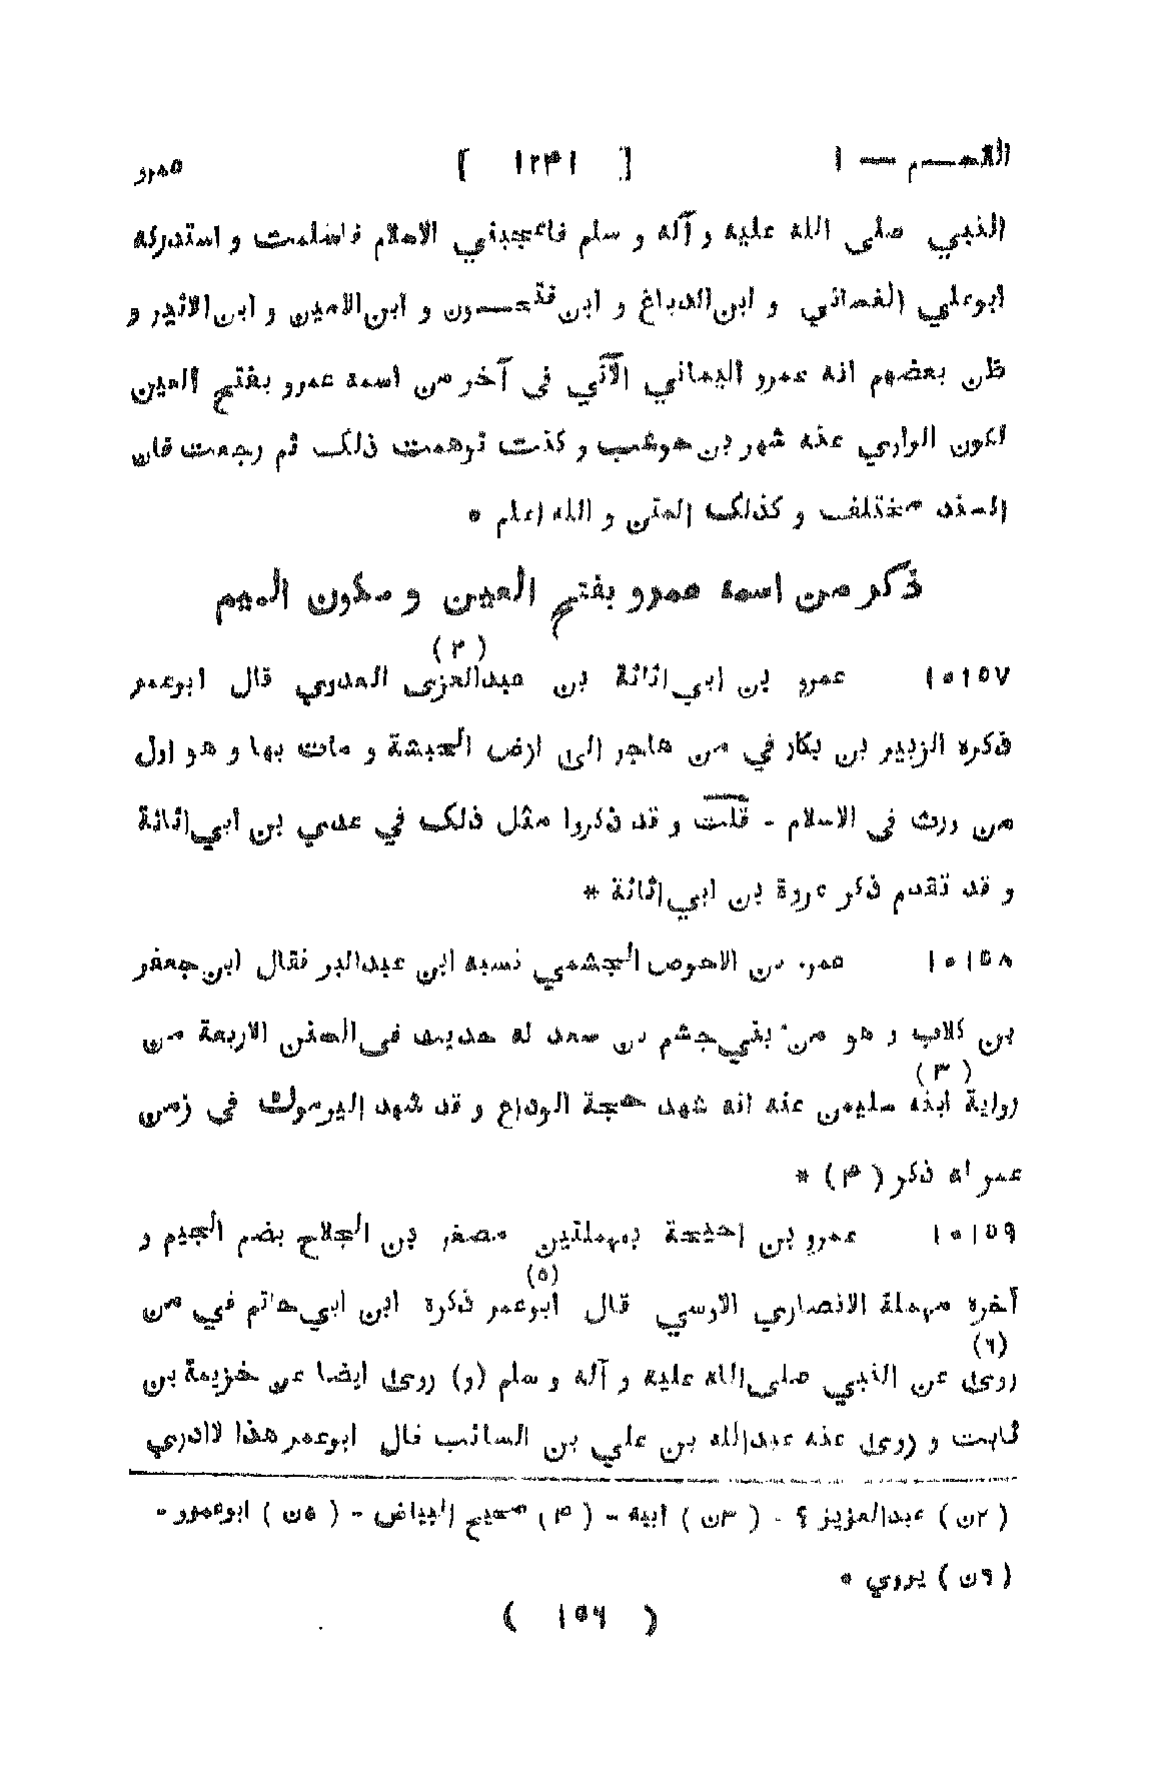 القسم — ١ [ ١٢٤١ ] عمرو
النبي صلى الله عليه و آله و سلم فاعجبني الاسلام فاسلمت و استدركه
ابوعلي الغساني و ابن الدباغ و ابن فتحون و ابن الامين و ابن الاثير و
ظن بعضهم انه عمرو اليماني الآتي في آخر من اسمه عمرو بفتح العين
لكون الراوي عنه شهر بن حوشب و كنت توهمت ذلك ثم رجعت فان
السند مختلف و كذلك المتن و الله اعلم *
ذكر من اسمه عمرو بفتح العين و سكون الميم
(٢)
١٠١٥٧ عمرو بن ابي اثاثة بن عبدالعزى العدوي قال ابوعمر
ذكره الزبير بن بكار في من هاجر الى ارض الحبشة و مات بها و هو اول
من ورث في الاسلام - قلت و قد ذكروا مثل ذلك في عدي بن ابي اثاثة
و قد تقدم ذكر عروة بن ابي اثاثة *
١٠١٥٨ عمرو بن الاحوص الجشمي نسبه ابن عبدالبر فقال ابن جعفر
بن كلاب و هو من بني جشم بن سعد له حديث في السنن الاربعة من
(٣)
رواية ابنه سليمن عنه انه شهد حجة الوداع و قد شهد اليرموك في زمن
عمر له ذكر (٤) *
١٠١٥٩ عمرو بن احيحة بمهملتين مصغر بن الجلاح بضم الجيم و
(٥)
آخره مهملة الانصاري الاوسي قال ابوعمر ذكره ابن ابي حاتم في من
(٦)
روى عن النبي صلى الله عليه و آله و سلم (و) روى ايضا عن خزيمة بن
ثابت و روى عنه عبدالله بن علي بن السائب قال ابوعمر هذا لاادري
(٢ن) عبدالعزيز ؟ - (٣ن) ابيه - (٤) صحيح البياض - (٥ن) ابوعمرو -
(٦ن) يروي *
( ١٥٦ )